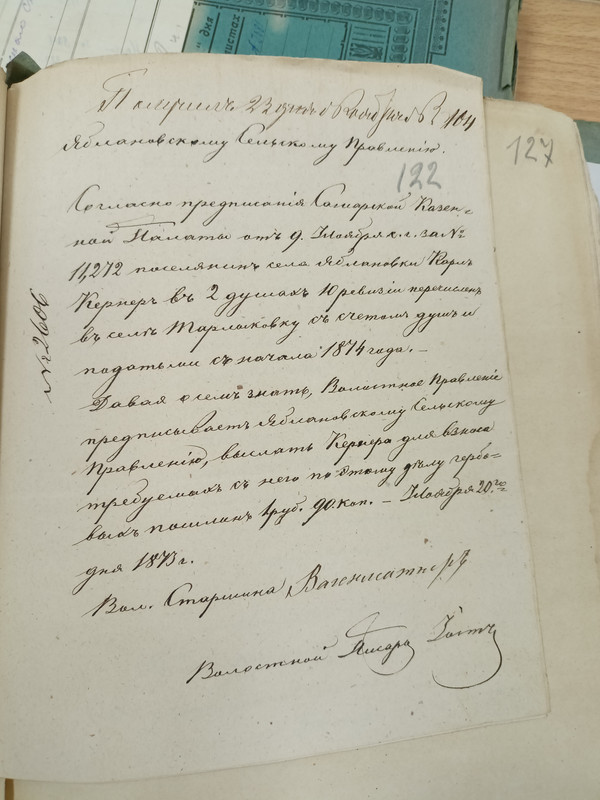 дня
листах
127
Получилъ 23 ноября
104
Яблановскому Сельскому Правленію.
122
Согласно предписанія Самарской Казен=
ной Палаты отъ 9. Ноября с.г. за №
11,272 поселянинъ села Яблановки Карлъ
Кернеръ въ 2 душахъ 10 ревизіи перечисленъ
въ село Тарлыковку съ счетомъ душъ и
податьми съ начала 1874 года. –
№ 2606
Давая о семъ знать, Волостное Правленіе
предписываетъ Яблановскому Сельскому
Правленію, выслать Кернера для взноса
требуемыхъ съ него по этому дѣлу гербо=
выхъ пошлинъ 1 руб. 90. коп. – Ноября 20.го
дня 1873 г.
Вол. Старшина
Волостной Писарь